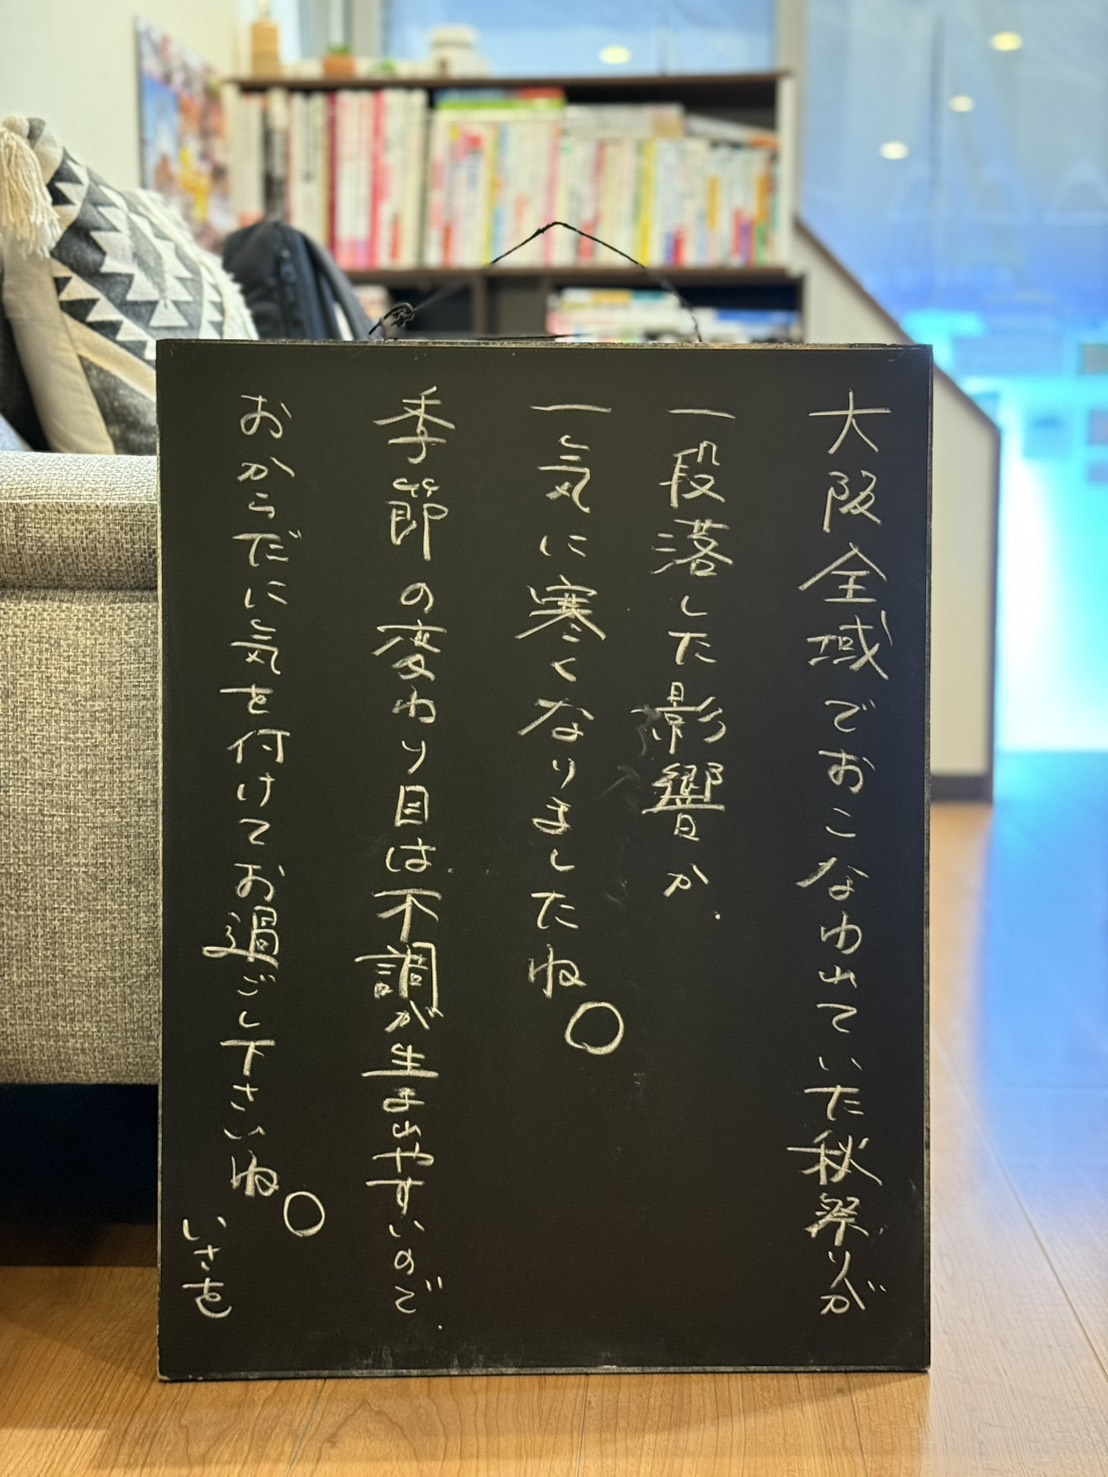 大阪全域でおこなわれていた秋祭りが
一段落した影響か、
一気に寒くなりましたね。
季節の変わり目は不調が生まれやすいので、
おからだに気を付けてお過ごし下さいね。
いさを